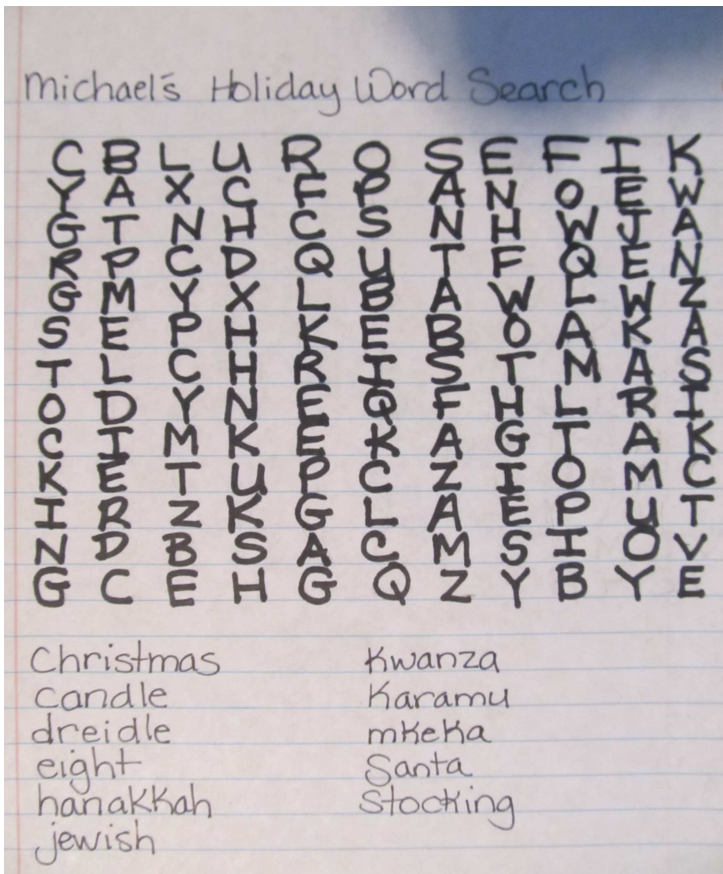 Michael's Holiday Word Search
C B L U R O S E F I K
Y A X C F P A N O E W
G T N H C S N H W J A
R P C D Q U T F Q E N
G M Y X L B A W L W Z
S E P H K E B O A K A
T L C H R I S T M A S
O D Y N E Q F H L R I
C I M K E K A G I A K
K E T U P C Z I O M C
I R Z K G L A E P U T
N D B S A C M S I O V
G C E H G Q Z Y B Y E
Christmas Kwanza
candle Karamu
dreidle mkeka
eight Santa
hanakkah Stocking
jewish